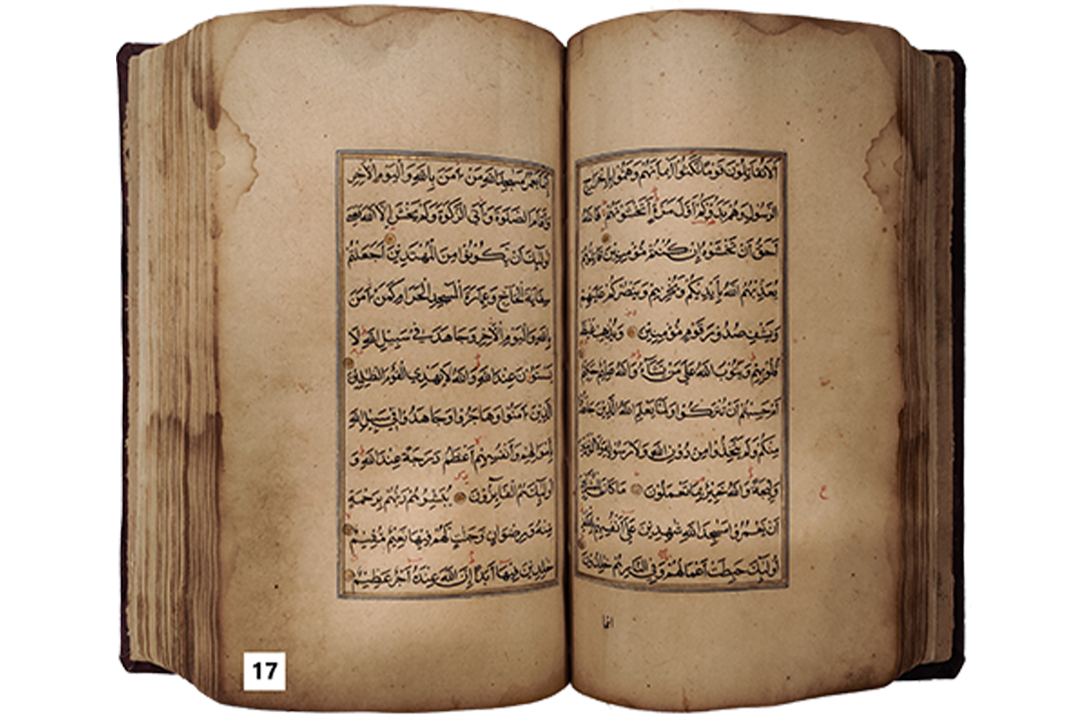 اَلَا تُقَاتِلُونَ قَوْمًا نَكَثُوا اَيْمَانَهُمْ وَهَمُّوا بِاِخْرَاجِ
الرَّسُولِ وَهُمْ بَدَؤُكُمْ اَوَّلَ مَرَّةٍ اَتَخْشَوْنَهُمْ فَاللّٰهُ
اَحَقُّ اَنْ تَخْشَوْهُ اِنْ كُنْتُمْ مُؤْمِنِينَ قَاتِلُوهُمْ
يُعَذِّبْهُمُ اللّٰهُ بِاَيْدِيكُمْ وَيُخْزِهِمْ وَيَنْصُرْكُمْ عَلَيْهِمْ
وَيَشْفِ صُدُورَ قَوْمٍ مُؤْمِنِينَ وَيُذْهِبْ غَيْظَ
قُلُوبِهِمْ وَيَتُوبُ اللّٰهُ عَلٰى مَنْ يَشَآءُ وَاللّٰهُ عَلِيمٌ حَكِيمٌ
اَمْ حَسِبْتُمْ اَنْ تُتْرَكُوا وَلَمَّا يَعْلَمِ اللّٰهُ الَّذِينَ جَاهَدُوا
مِنْكُمْ وَلَمْ يَتَّخِذُوا مِنْ دُونِ اللّٰهِ وَلَا رَسُولِهِ وَلَا الْمُؤْمِنِينَ
وَلِيجَةً وَاللّٰهُ خَبِيرٌ بِمَا تَعْمَلُونَ مَا كَانَ لِلْمُشْرِكِينَ
اَنْ يَعْمُرُوا مَسٰجِدَ اللّٰهِ شٰهِدِينَ عَلٰى اَنْفُسِهِمْ بِالْكُفْرِ
اُولٰٓئِكَ حَبِطَتْ اَعْمَالُهُمْ وَفِي النَّارِ هُمْ خٰلِدُونَ
انما
اِنَّمَا يَعْمُرُ مَسٰجِدَ اللّٰهِ مَنْ اٰمَنَ بِاللّٰهِ وَالْيَوْمِ الْاٰخِرِ
وَاَقَامَ الصَّلٰوةَ وَاٰتَى الزَّكٰوةَ وَلَمْ يَخْشَ اِلَّا اللّٰهَ فَعَسٰى
اُولٰٓئِكَ اَنْ يَكُونُوا مِنَ الْمُهْتَدِينَ اَجَعَلْتُمْ
سِقَايَةَ الْحَاجِّ وَعِمَارَةَ الْمَسْجِدِ الْحَرَامِ كَمَنْ اٰمَنَ
بِاللّٰهِ وَالْيَوْمِ الْاٰخِرِ وَجَاهَدَ فِي سَبِيلِ اللّٰهِ لَا
يَسْتَوُونَ عِنْدَ اللّٰهِ وَاللّٰهُ لَا يَهْدِي الْقَوْمَ الظّٰلِمِينَ
اَلَّذِينَ اٰمَنُوا وَهَاجَرُوا وَجَاهَدُوا فِي سَبِيلِ اللّٰهِ
بِاَمْوَالِهِمْ وَاَنْفُسِهِمْ اَعْظَمُ دَرَجَةً عِنْدَ اللّٰهِ وَ
اُولٰٓئِكَ هُمُ الْفَآئِزُونَ يُبَشِّرُهُمْ رَبُّهُمْ بِرَحْمَةٍ
مِنْهُ وَرِضْوَانٍ وَجَنّٰتٍ لَهُمْ فِيهَا نَعِيمٌ مُقِيمٌ
خٰلِدِينَ فِيهَا اَبَدًا اِنَّ اللّٰهَ عِنْدَهُ اَجْرٌ عَظِيمٌ
17